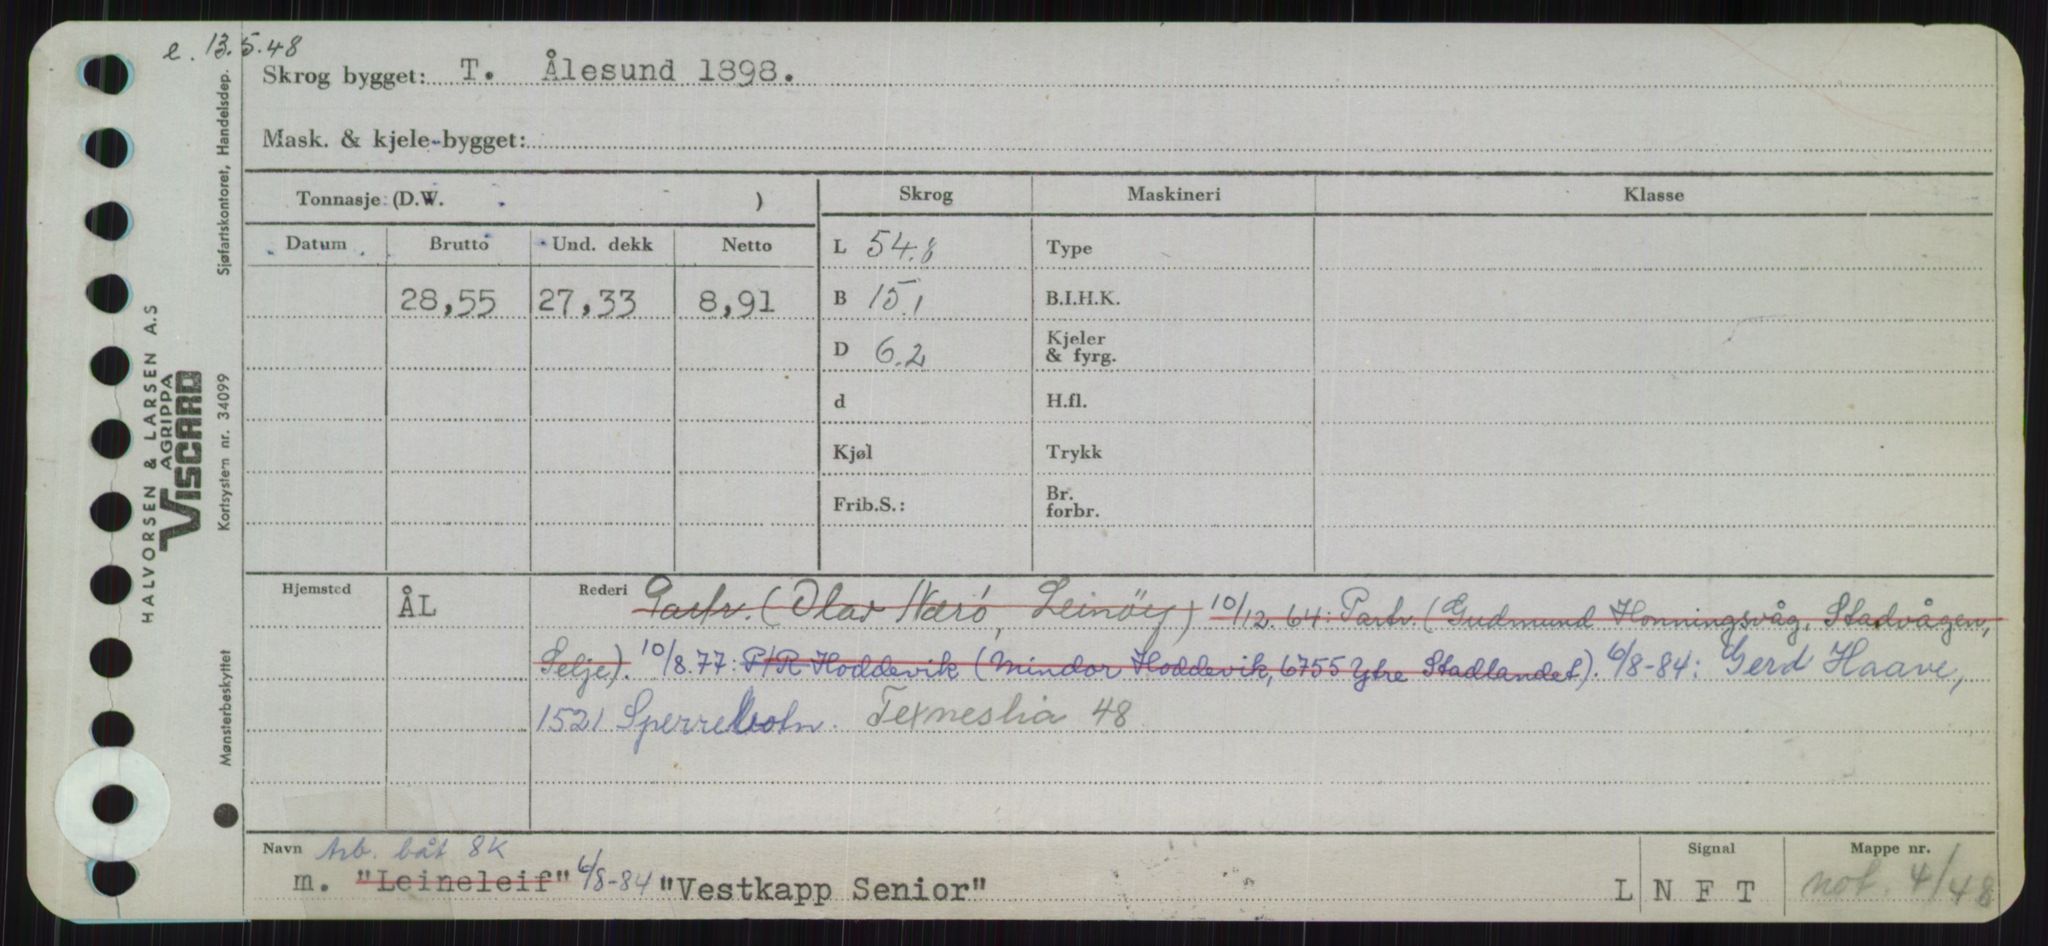 e. 13.5.48
Skrog bygget: T. Ålesund 1898.
Mask. & kjele-bygget:
Tonnasje (D.W. )
Skrog
Maskineri
Klasse
Datum
Brutto
Und. dekk
Netto
28,55
27,33
8,91
L 54.8
B 15.1
D 6.2
d
Kjøl
Frib.S.:
Type
B.I.H.K.
Kjeler
& fyrg.
H.fl.
Trykk
Br.
forbr.
Hjemsted
ÅL
Rederi Partr. (Olav Nærö, Leinöy) 10/12.64: Partr. (Gudmund Honningsvåg, Stadvågen,
Selje). 10/8.77: P/R Hoddevik (Mindor Hoddevik, 6755 Ytre Stadlandet). 6/8-84: Gerd Haave,
1521 Sperrebotn. Texneslia 48
Navn Arb. båt 8K
m. "Leineleif" 6/8-84 "Vestkapp Senior"
Signal
L N F T
Mappe nr.
not. 4/48
Sjøfartskontoret, Handelsdep.
HALVORSEN & LARSEN A.S
AGRIPPA
VISCARD
Kortsystem nr. 34099
Mønsterbeskyttet